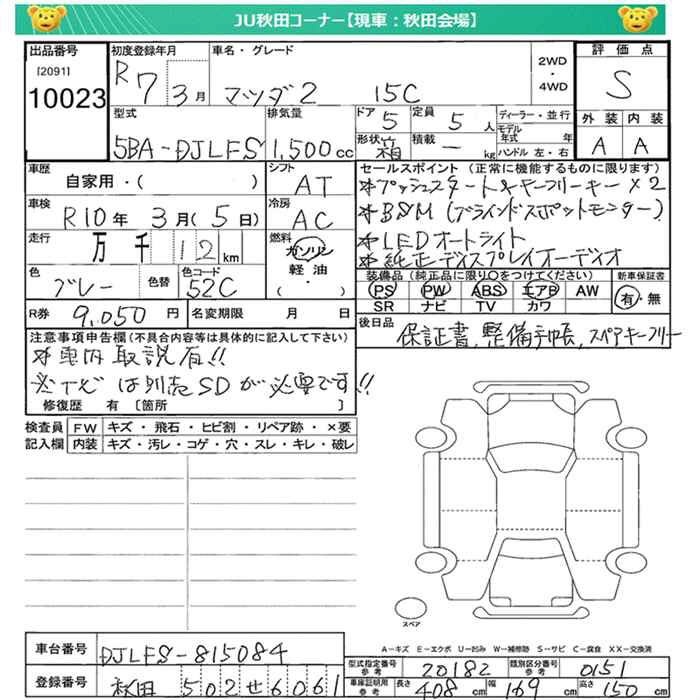 JU秋田コーナー【現車：秋田会場】
出品番号 [2091] 10023
初度登録年月 R7 3月
車名・グレード マツダ2 15C
2WD・4WD
評価点 S
外装 内装
A A
型式 5BA-DJLFS
排気量 1,500cc
ドア 5 定員 5人
形状 箱 積載 ー kg
ディーラー・並行
モデル年式 年
ハンドル 左・右
車歴 自家用・( )
シフト AT
車検 R10年 3月(5日)
冷房 AC
走行 万千 12km
燃料 ガソリン 軽油 ・( )
色 グレー 色替 色コード 52C
R券 9,050円 名変期限 月 日
セールスポイント (正常に機能するものに限ります)
*プッシュスタート&キーフリーキー×2
*BSM(ブラインドスポットモンター)
*LEDオートライト
*純正ディスプレイオーディオ
装備品 (純正品に限り○をつけてください)
PS PW ABS エアB AW
SR ナビ TV カワ
新車保証書 有・無
後日品 保証書,整備手帳,スペアキーフリー
注意事項申告欄(不具合内容等は具体的に記入して下さい)
*車内取説有!!
※ナビは別売SDが必要です!!
修復歴 有 [箇所 ]
検査員記入欄
FW キズ・飛石・ヒビ割・リペア跡・×要
内装 キズ・汚レ・コゲ・穴・スレ・キレ・破レ
スペア
A−キズ E−エクボ U−凹み W−補修跡 S−サビ C−腐食 XX−交換済
車台番号 DJLFS-815084
登録番号 秋田 502 せ 6061
型式指定番号 参考 20182 類別区分番号 参考 0151
車庫証明用 参考 長さ 408cm 幅 169cm 高さ 150cm